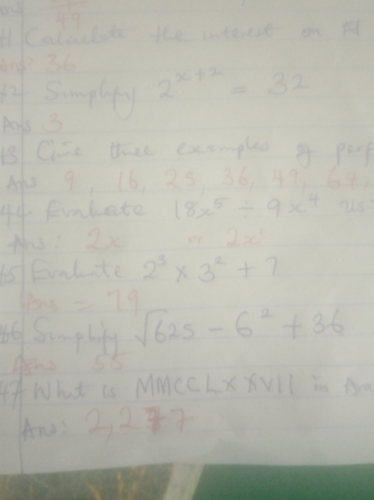 49
41 Calculate the interest on ₦
Ans: 36
42 Simplify 2^(x+2) = 32
Ans 3
43 Give three examples of perf
Ans 9, 16, 25, 36, 49, 64,
44 Evaluate 18x⁵ ÷ 9x⁴
Ans: 2x or 2x¹
45 Evaluate 2³ x 3² + 7
Ans = 79
46 Simplify √625 - 6² + 36
Ans 55
47 What is MMCCLXXVII in Ara
Ans: 2,277